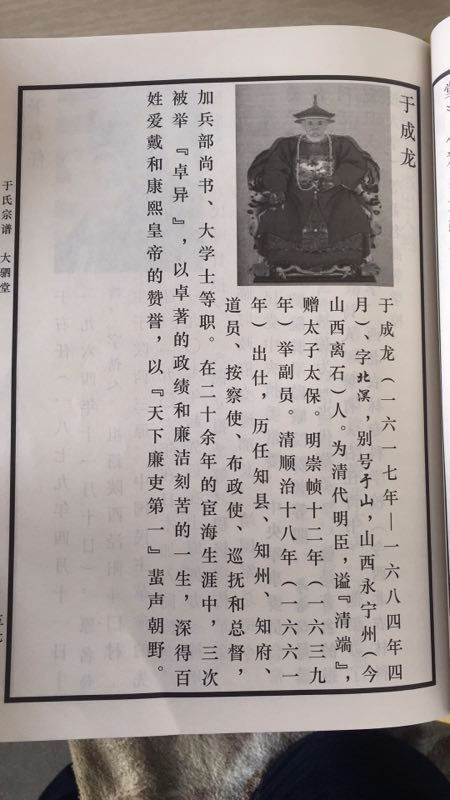 于成龙
于成龙（一六一七年—一六八四年四
月）、字北溟，别号于山，山西永宁州（今
山西离石）人。为清代明臣，谥『清端』，
赠太子太保。明崇帧十二年（一六三九
年）举副员。清顺治十八年（一六六一
年）出仕，历任知县、知州、知府、
道员、按察使、布政使、巡抚和总督，
加兵部尚书、大学士等职。在二十余年的宦海生涯中，三次
被举『卓异』，以卓著的政绩和廉洁刻苦的一生，深得百
姓爱戴和康熙皇帝的赞誉，以『天下廉吏第一』蜚声朝野。
于氏宗谱 大驷堂